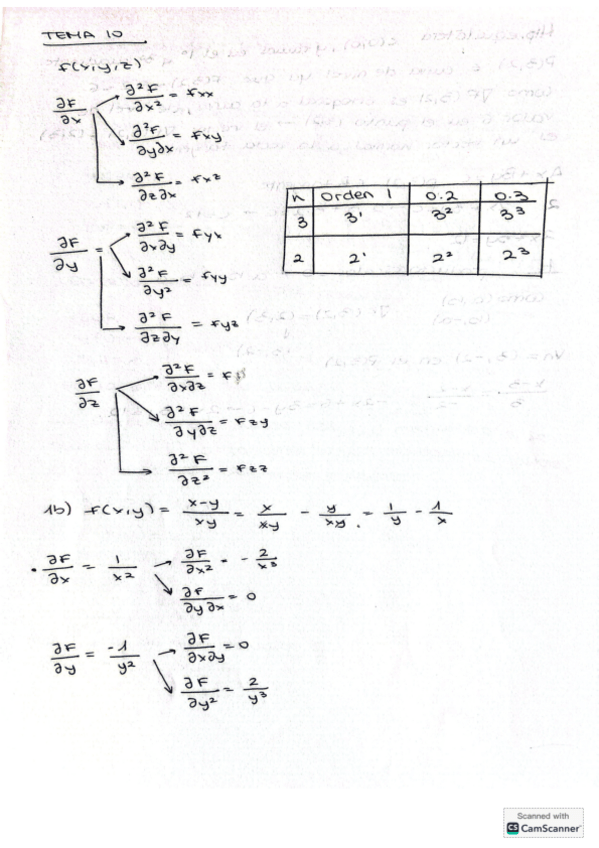 TEMA 10
f(x,y,z)
∂F/∂x
∂²F/∂x² = fxx
∂²F/∂y∂x = fxy
∂²F/∂z∂x = fxz
n | Orden 1 | 0.2 | 0.3
3 | 3¹ | 3² | 3³
2 | 2¹ | 2² | 2³
∂F/∂y =
∂²F/∂x∂y = fyx
∂²F/∂y² = fyy
∂²F/∂z∂y = fyz
∂F/∂z
∂²F/∂x∂z = f
∂²F/∂y∂z = fzy
∂²F/∂z² = fzz
1b) f(x,y) = x-y/xy = x/xy - y/xy = 1/y - 1/x
∂F/∂x = 1/x² → ∂F/∂x² = - 2/x³
∂F/∂y∂x = 0
∂F/∂y = -1/y² → ∂F/∂x∂y = 0
∂F/∂y² = 2/y³
Scanned with
CS CamScanner